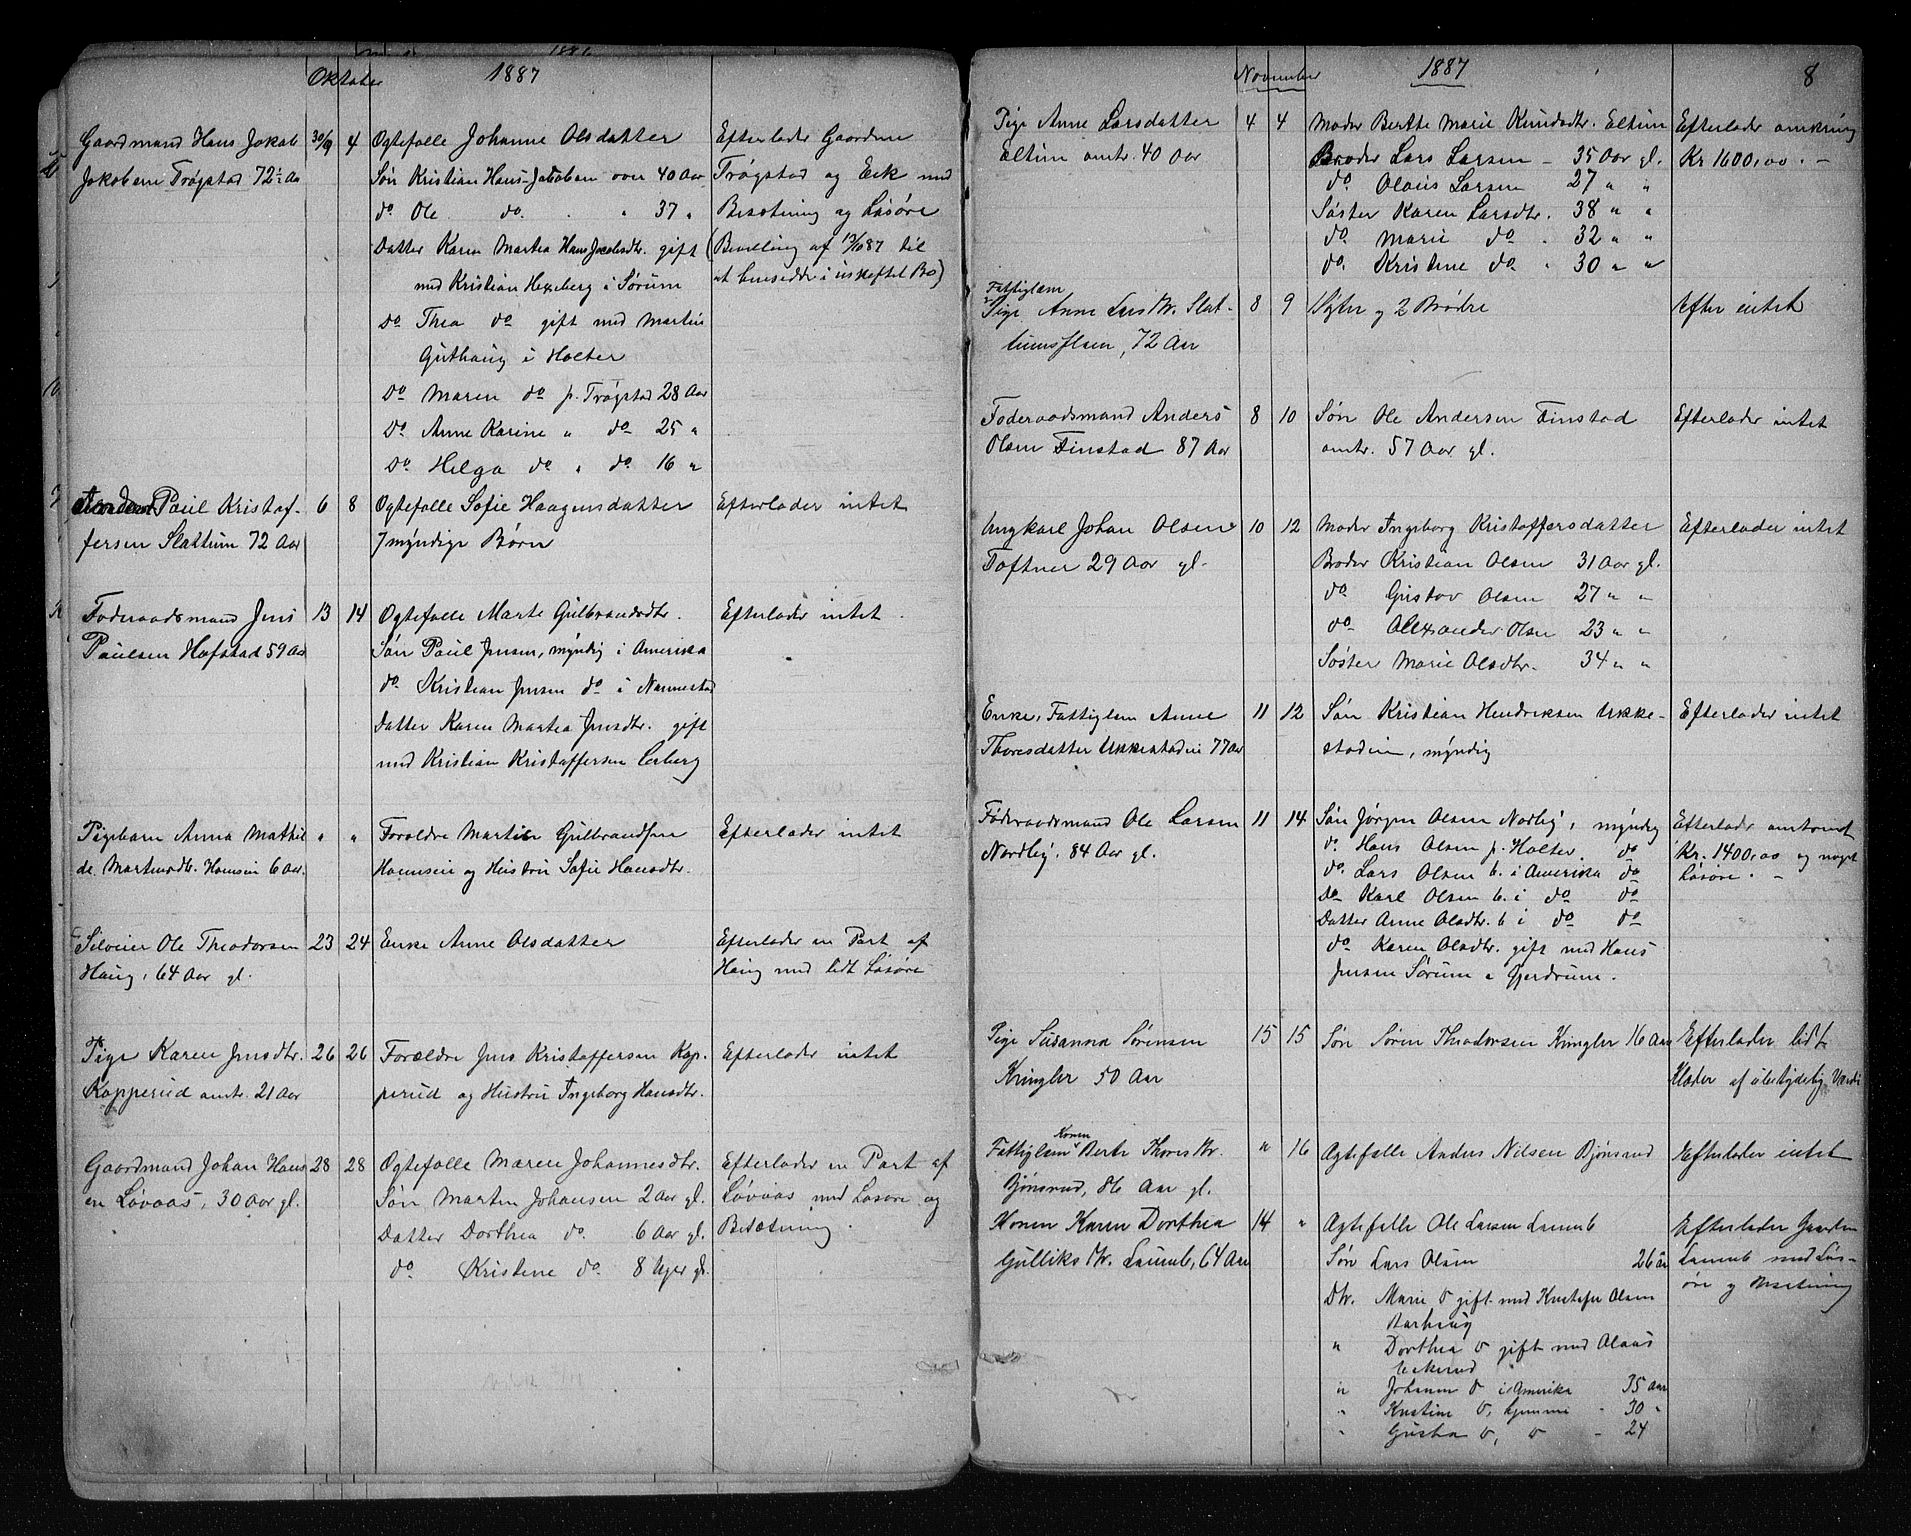 Oktober 1887
Gaardmand Hans Jakob 30/9 4 Ogtefolle Johanne Olsdatter Efterlader Gaarden
Jakobsen Trøgstad 72 Aar Søn Kristian Hans-Jacobsen over 40 Aar Trøgstad og Eik med
do Ole do. " 37 " Besætning og Løsøre
Datter Karen Martea Hans Jacobsdtr. gift (Bevilling af 13/10 87 til
med Kristian Hexeberg i Sørum at hensidde i uskiftet Bo)
Do Thea do gift med Martin
Guthaug i Holter
Do Maren do p. Trøgstad 28 Aar
Do Anne Karine " do 25 "
Do Helga do " do. 16 "
Paul Kristof- 6 8 Ogtefolle Sofie Haagensdatter Efterlader intet
fersen Slattum 72 Aar 7 myndige Børn
Foderaadsmand Jens 13 14 Ogtefolle Marte Gulbrandsdtr. Efterlader intet.
Paulsen Hofstad 59 Aar Søn Paul Jensen, myndig i Amerika
do. Kristian Jensen do i Nannestad
Datter Karen Martea Jensdtr. gift
med Kristian Kristoffersen Lerberg
Pigebarn Anna Mathil " " Foroldre Martin Gulbrandsen Efterlader intet
de Martinsdtr. Hamsen 6 Aar. Hamsen og Hustru Sofie Hansdtr.
Selveier Ole Theodorsen 23 24 Enke Anne Olsdatter Efterlader en Part af
Haug, 64 Aar gl. Haug med lidt Løsøre
Pige Karen Jensdtr. 26 26 Forældre Jens Kristoffersen Kop- Efterlader intet
Kopperud omtr. 21 Aar perud og Hustru Ingeborg Hansdtr.
Gaardmand Johan Hans 28 28 Ogtefolle Maren Johannesdtr. Efterlader en Part af
en Løvaas, 30 Aar gl. Søn Martin Johansen 2 Aar gl. Løvaas med Løsøre og
Datter Dorthea do. 6 Aar gl. Besætning.
do Kristine do. 8 Uger gl.
November 1887 8
Pige Anne Larsdatter 4 4 Moder Berthe Marie Knudsdtr. Eltun Efterlader omkring
Eltun omtr. 40 Aar Broder Lars Larsen - 35 Aar gl. Kr 1600,00. -
do Olaus Larsen 27 " "
Søster Karen Larsdtr. 38 " "
do Marie do " 32 " "
do. Kristine do " 30 " "
Fattiglem
Pige Anne Larsdtr. Slat- 8 9 Syster og 2 Brødre Efter intet
tumsflaen, 72 Aar
Foderaadsmand Anders 8 10 Søn Ole Andersen Finstad Efterlader intet
Olsen Finstad 87 Aar omtr. 57 Aar gl.
Ungkarl Johan Olsen 10 12 Moder Ingeborg Kristoffersdatter Efterlader intet
Toftner 29 Aar gl. Broder Kristian Olsen 31 Aar gl.
do Gustav Olsen 27 " "
do Allexander Olsen 23 " "
Søster Marie Olsdtr. 34 " "
Enke, Fattiglem Anne 11 12 Søn Kristian Hendriksen Ukke- Efterlader intet
Thoresdatter Ukkestadeie 77 Aar stadeie, myndig
Føderaadsmand Ole Larsen 11 14 Søn Jørgen Olsen Nordlig, myndig Efterlader omtrent
Nordlig, 84 Aar gl. do. Hans Olsen p. Holter do Kr. 1400,00 og noget
do. Lars Olsen b. i Amerika do Løsøre. -
Do Karl Olsen b. i do do
Datter Anne Olsdtr. b i do do
do. Karen Olsdtr. gift med Hans
Jensen Sørum i Gjerdrum.
Pige Susanna Sørensen 15 15 Søn Søren Theodorsen Kringler 16 Aar Efterlader lidt
Kringler 50 Aar Klæder af ubetydelig Værdi
Konen
Fattiglem Berte Thoresdtr. " 16 Agtefolle Anders Nilsen Bjønsrud Efterlader intet
Bjønsrud, 86 Aar gl.
Konen Karen Dorthea 14 " Agtefolle Ole Larsen Laumb Efterlader Gaarden
Gulliksdtr. Laumb, 64 Aar Søn Lars Olsen 26 år Laumb med Løs-
Dtr. Marie O gift med Kristofer Olsen øre og Besetning
" Dorthea O gift med Olaus
" Johanne O i Amerika 35 Aar
" Kristine O, hjemme " 30 "
" Gusta O, O - 24